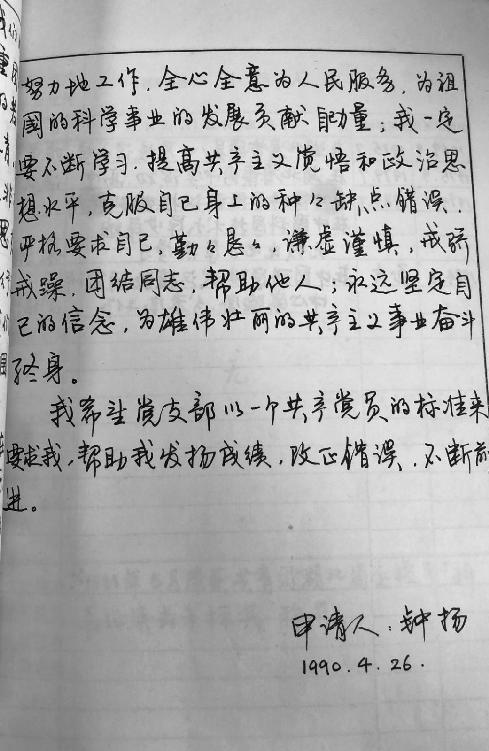 努力地工作，全心全意为人民服务，为祖
國的科学事业的发展贡献自己力量；我一定
要不断学习，提高共产主义觉悟和政治思
想水平，克服自己身上的种々缺点错误，
严格要求自己，勤々恳々，谦虚谨慎，戒骄
戒躁，团结同志，帮助他人；永远坚定自
己的信念，为雄伟壮丽的共产主义事业奋斗
终身。
我希望党支部以一个共产党员的标准来
要求我，帮助我发扬成绩，改正错误，不断前
进。
申请人：钟扬
1990.4.26.